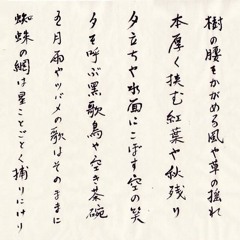 樹の腰をかがめる風や草の揺れ
本厚く挟む紅葉や秋残り
夕立ちや水面にこぼす空の笑
夕を呼ぶ黒歌鳥や空き茶碗
五月雨やツバメの歌はそのままに
蜘蛛の網は星ことごとく捕りにけり